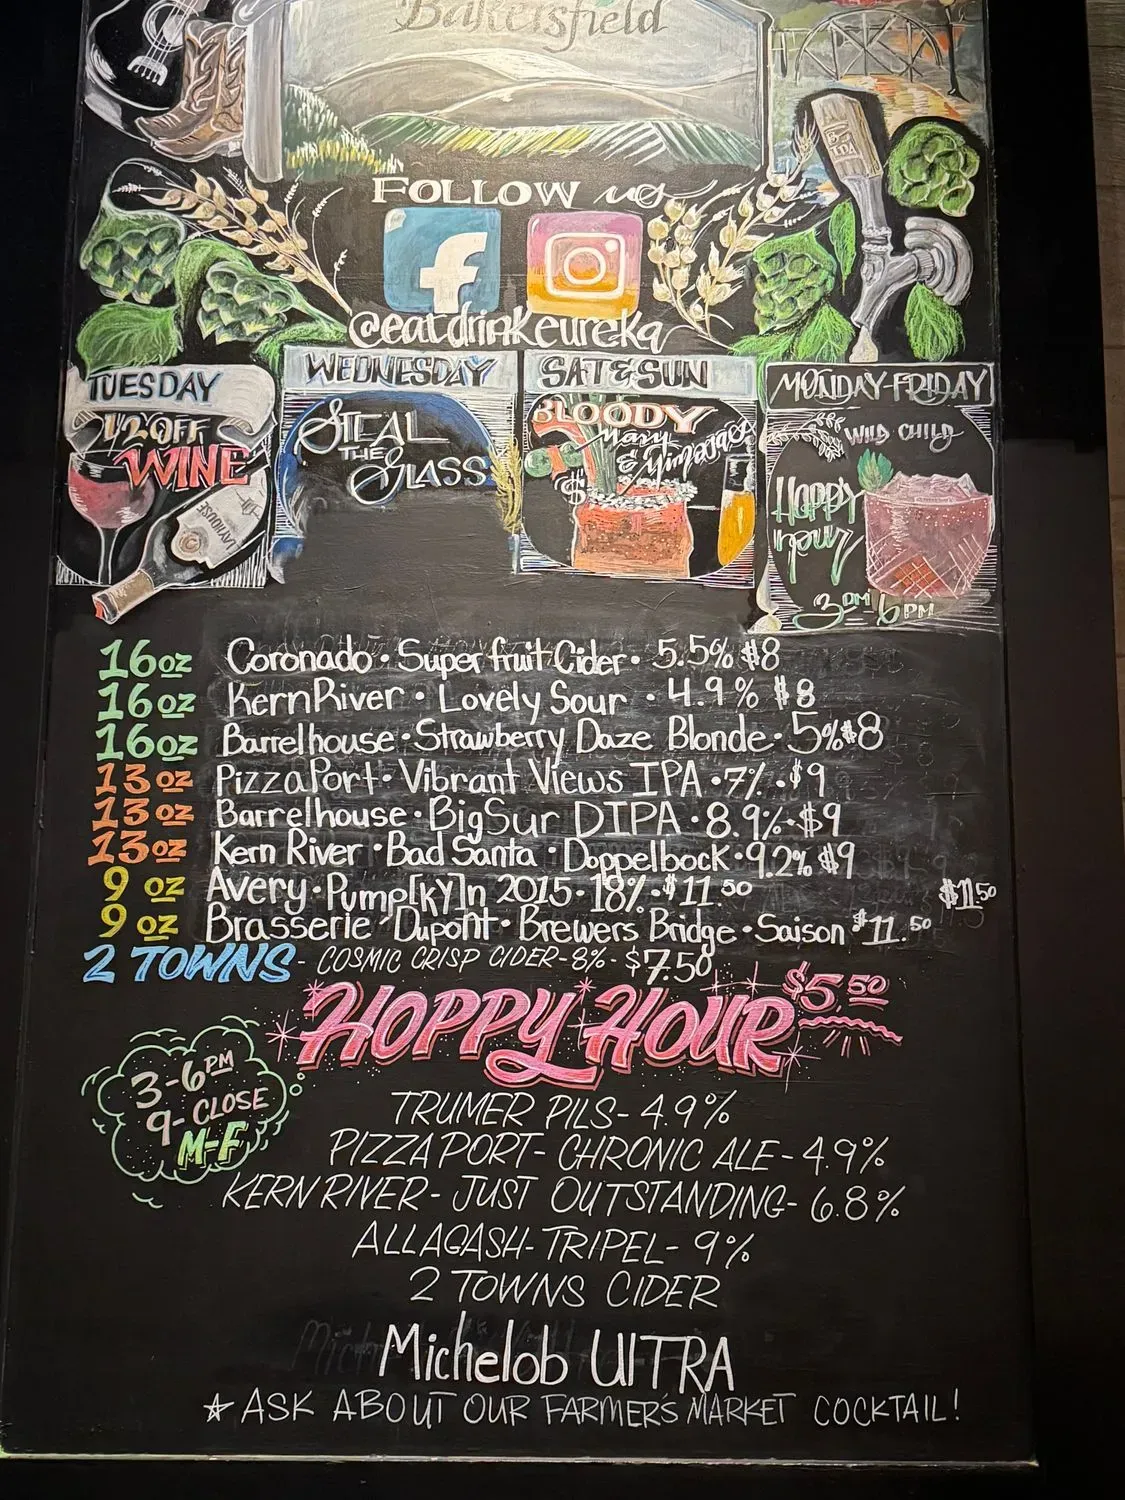 Bakersfield
FOLLOW us
@eatdrinkeureka
TUESDAY
1/2 OFF
WINE
LAYHOUSE
WEDNESDAY
STEAL
THE
GLASS
SAT & SUN
BLOODY
Mary
& Mimosas
$
MONDAY-FRIDAY
WILD CHILD
HOPPY
HOUR
3PM 6PM
IPA
16oz Coronado • Super fruit Cider • 5.5% $8
16oz Kern River • Lovely Sour • 4.9% $8
16oz Barrelhouse • Strawberry Daze Blonde • 5% $8
13oz Pizza Port • Vibrant Views IPA • 7% • $9
13oz Barrelhouse • Big Sur DIPA • 8.9% • $9
13oz Kern River • Bad Santa • Doppelbock • 9.2% $9
9 oz Avery • Pump[kY]n 2015 • 18% • $11.50 $11.50
9 oz Brasserie Dupont • Brewers Bridge • Saison $11.50
2 TOWNS - COSMIC CRISP CIDER - 8% - $7.50
HOPPY HOUR $5.50
3-6PM
9-CLOSE
M-F
TRUMER PILS - 4.9%
PIZZA PORT - CHRONIC ALE - 4.9%
KERN RIVER - JUST OUTSTANDING - 6.8%
ALLAGASH - TRIPEL - 9%
2 TOWNS CIDER
Michelob UlTRA
☆ ASK ABOUT OUR FARMER'S MARKET COCKTAIL!